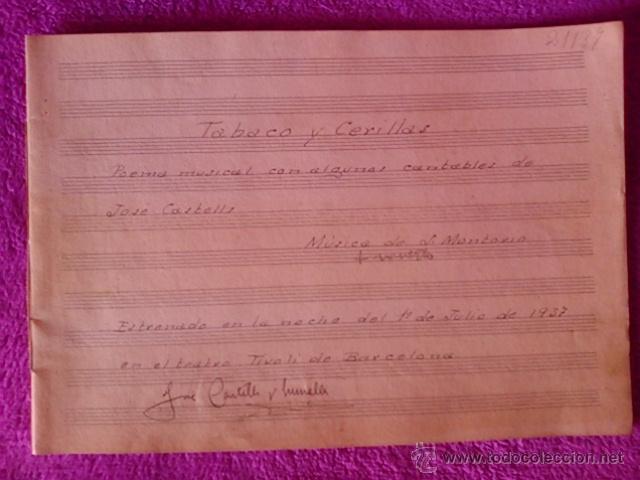 21139
Tabaco y Cerillas
Poema musical con algunos cantables de
José Castells
Música de J. Montorio
Estrenado en la noche del 1º de Julio de 1937
en el teatro Tívoli de Barcelona
José Castells y
todocoleccion
www.todocoleccion.net